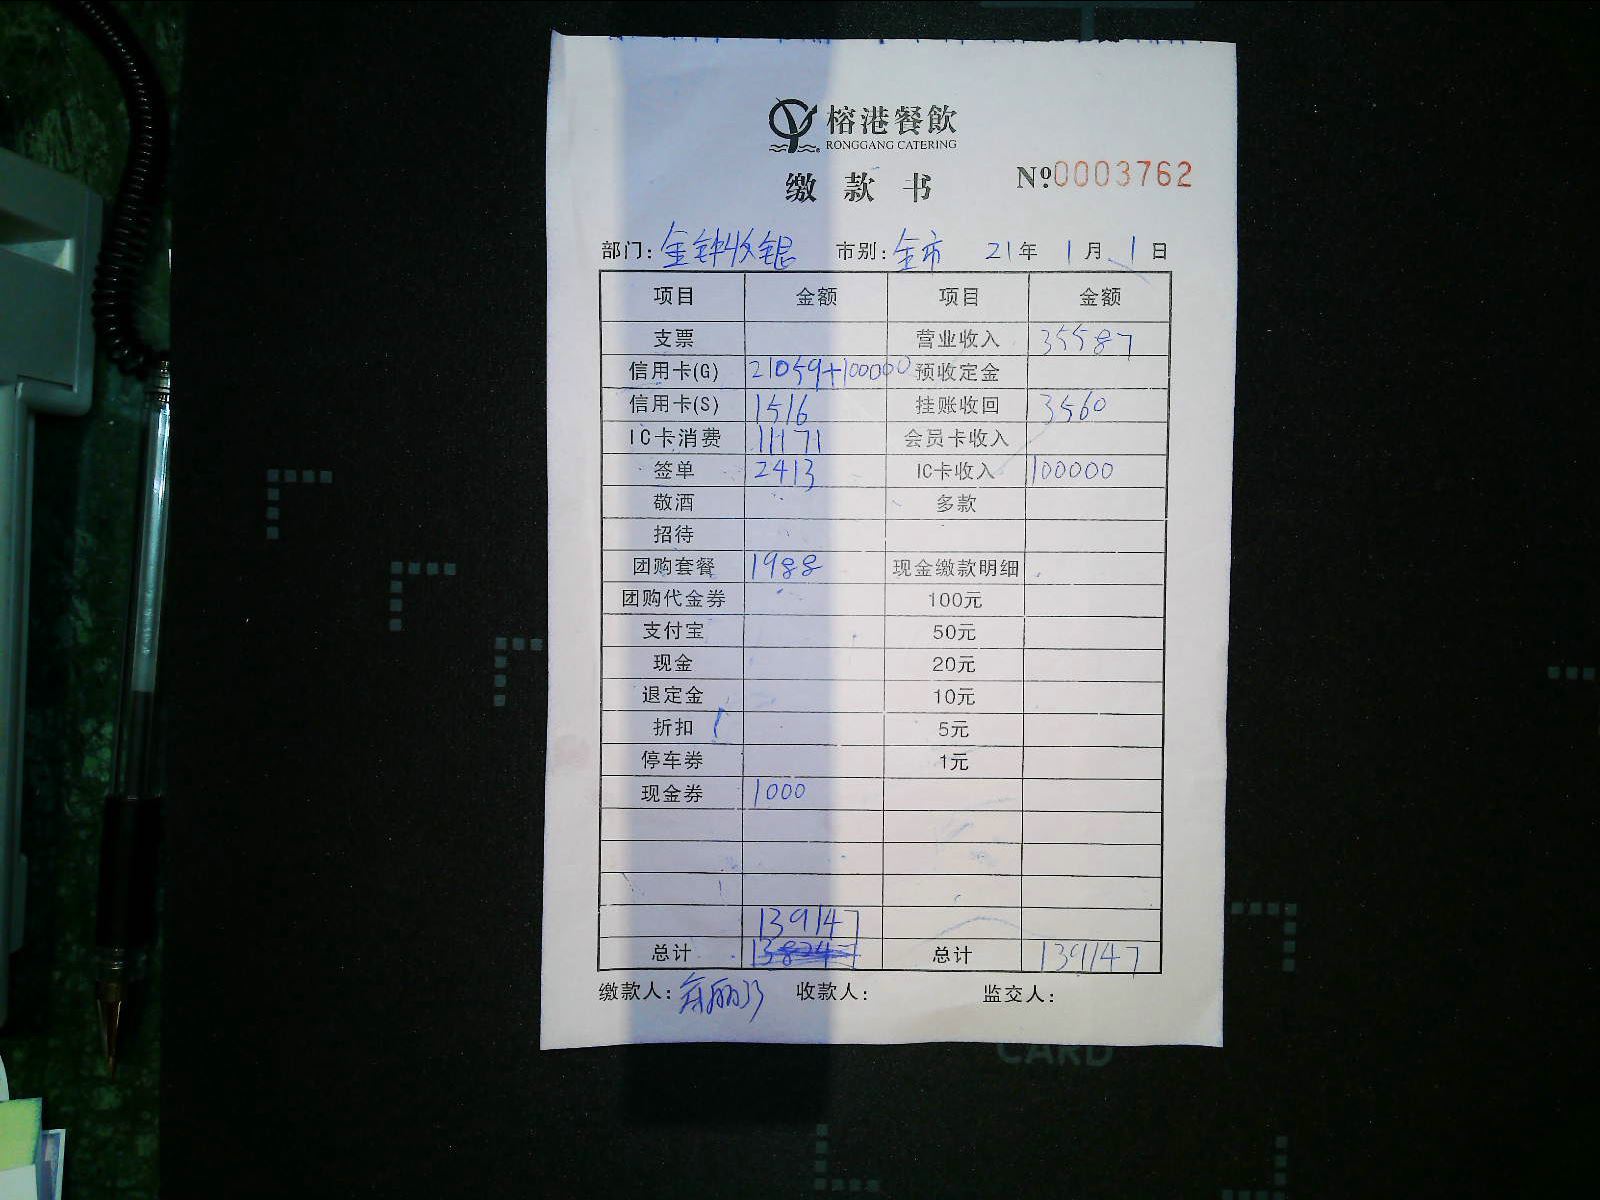 榕港餐飲
RONGGANG CATERING
缴款书 №0003762
部门: 金钟收银 市别: 全市 21年 1月 1日
项目 金额 项目 金额
支票 营业收入 35587
信用卡(G) 21059+100000 预收定金
信用卡(S) 1516 挂账收回 3560
IC卡消费 11171 会员卡收入
签单 2413 IC卡收入 100000
敬酒 多款
招待
团购套餐 1988 现金缴款明细
团购代金券 100元
支付宝 50元
现金 20元
退定金 10元
折扣 5元
停车券 1元
现金券 1000
139147
总计 总计 139147
缴款人: 收款人: 监交人:
CARD